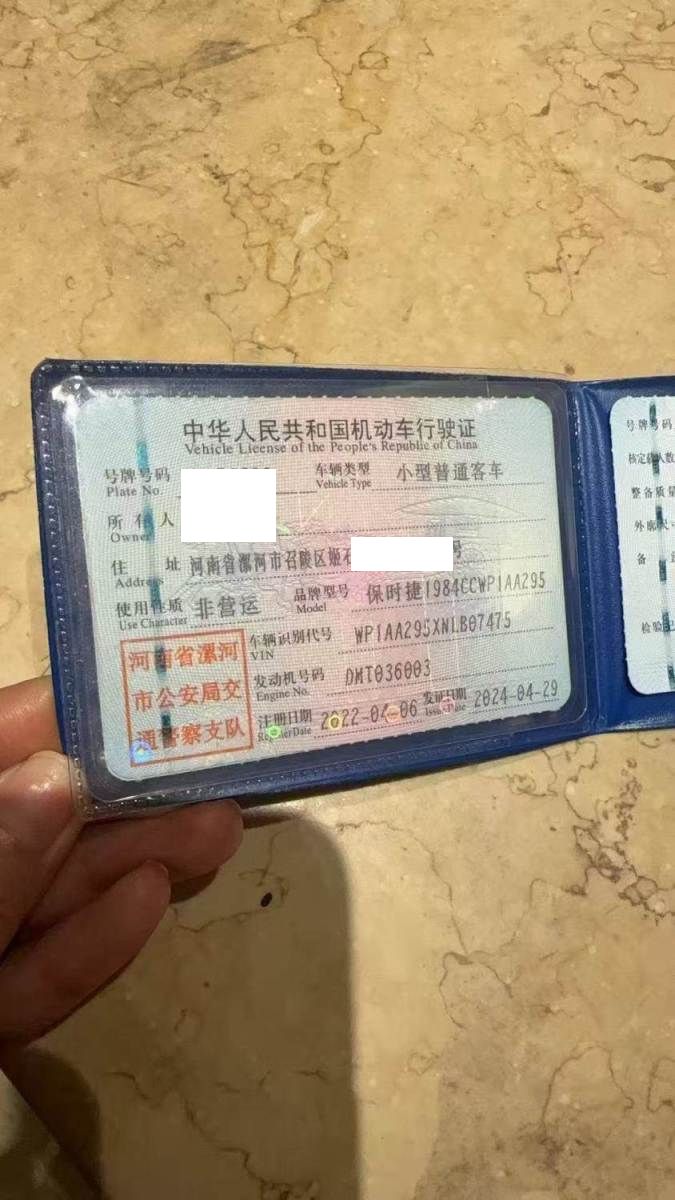 中华人民共和国机动车行驶证
Vehicle License of the People's Republic of China
号牌号码
Plate No.
车辆类型 小型普通客车
Vehicle Type
所有人
Owner
住 址 河南省漯河市召陵区姬石 号
Address
使用性质 非营运
Use Character
品牌型号 保时捷1984CCWP1AA295
Model
河南省漯河
市公安局交
通警察支队
车辆识别代号 WP1AA295XNLB07475
VIN
发动机号码 DMT036003
Engine No.
注册日期 2022-04-06
Register Date
发证日期 2024-04-29
Issue Date
号牌号码
核定载人数
整备质量
外廓尺寸
备
检验记